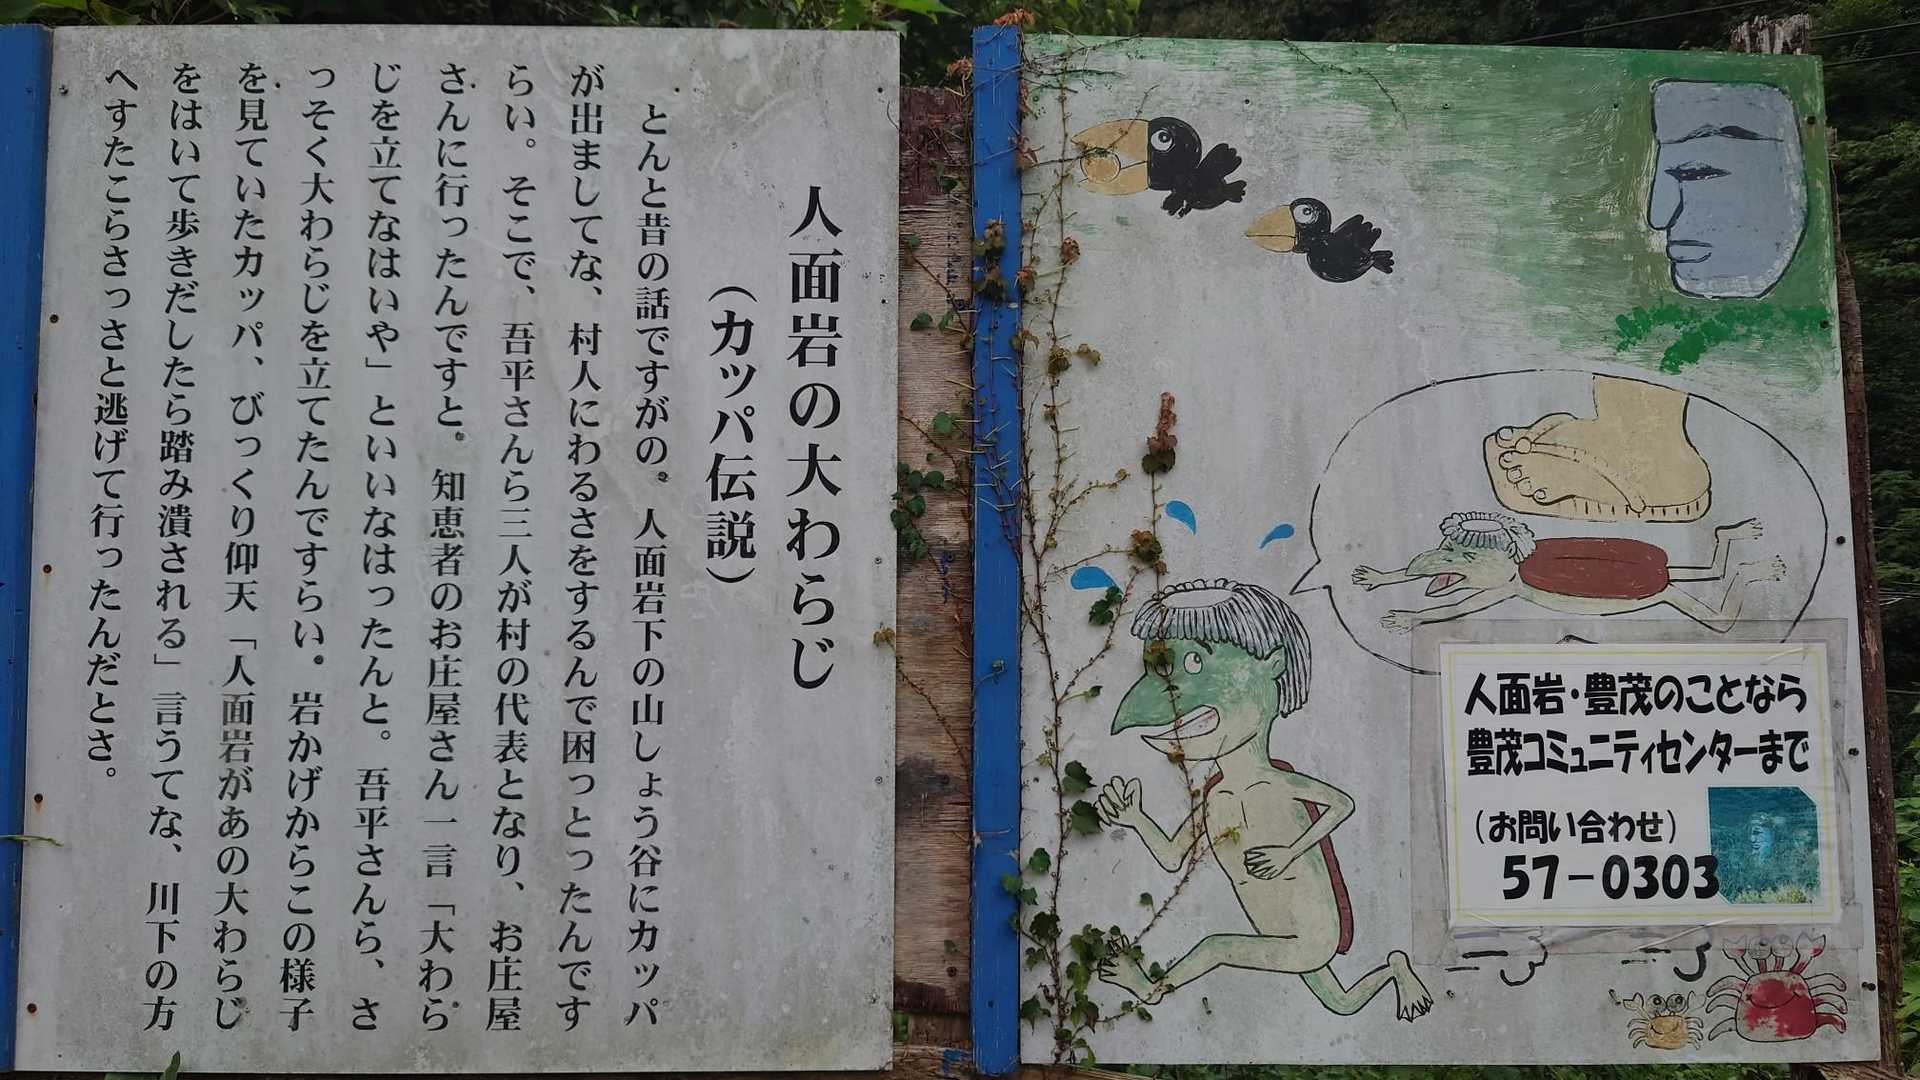 人面岩の大わらじ
（カッパ伝説）
とんと昔の話ですがの。人面岩下の山しょう谷にカッパ
が出ましてな、村人にわるさをするんで困っとったんです
らい。そこで、吾平さんら三人が村の代表となり、お庄屋
さんに行ったんですと。知恵者のお庄屋さん一言「大わら
じを立てなはいや」といいなはったんと。吾平さんら、さ
っそく大わらじを立てたんですらい。岩かげからこの様子
を見ていたカッパ、びっくり仰天「人面岩があの大わらじ
をはいて歩きだしたら踏み潰される」言うてな、川下の方
へすたこらさっさと逃げて行ったんだとさ。
人面岩・豊茂のことなら
豊茂コミュニティセンターまで
（お問い合わせ）
57－0303